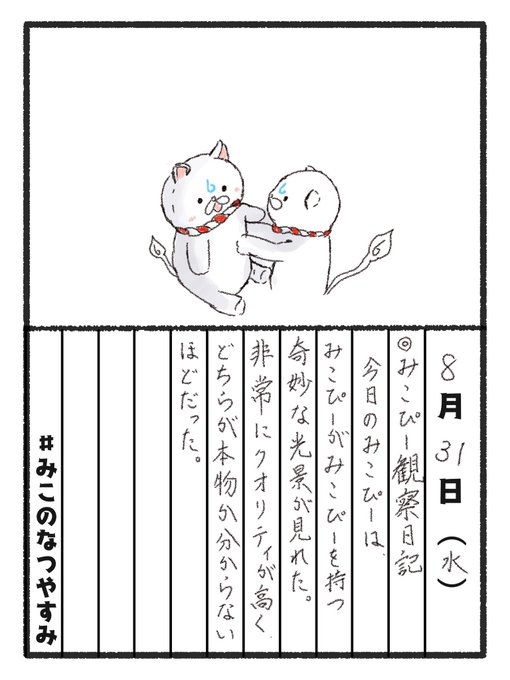 8月31日（水）
◎みこぴー観察日記
今日のみこぴーは、
みこぴーがみこぴーを持つ
奇妙な光景が見れた。
非常にクオリティが高く、
どちらが本物か分からない
ほどだった。
#みこのなつやすみ